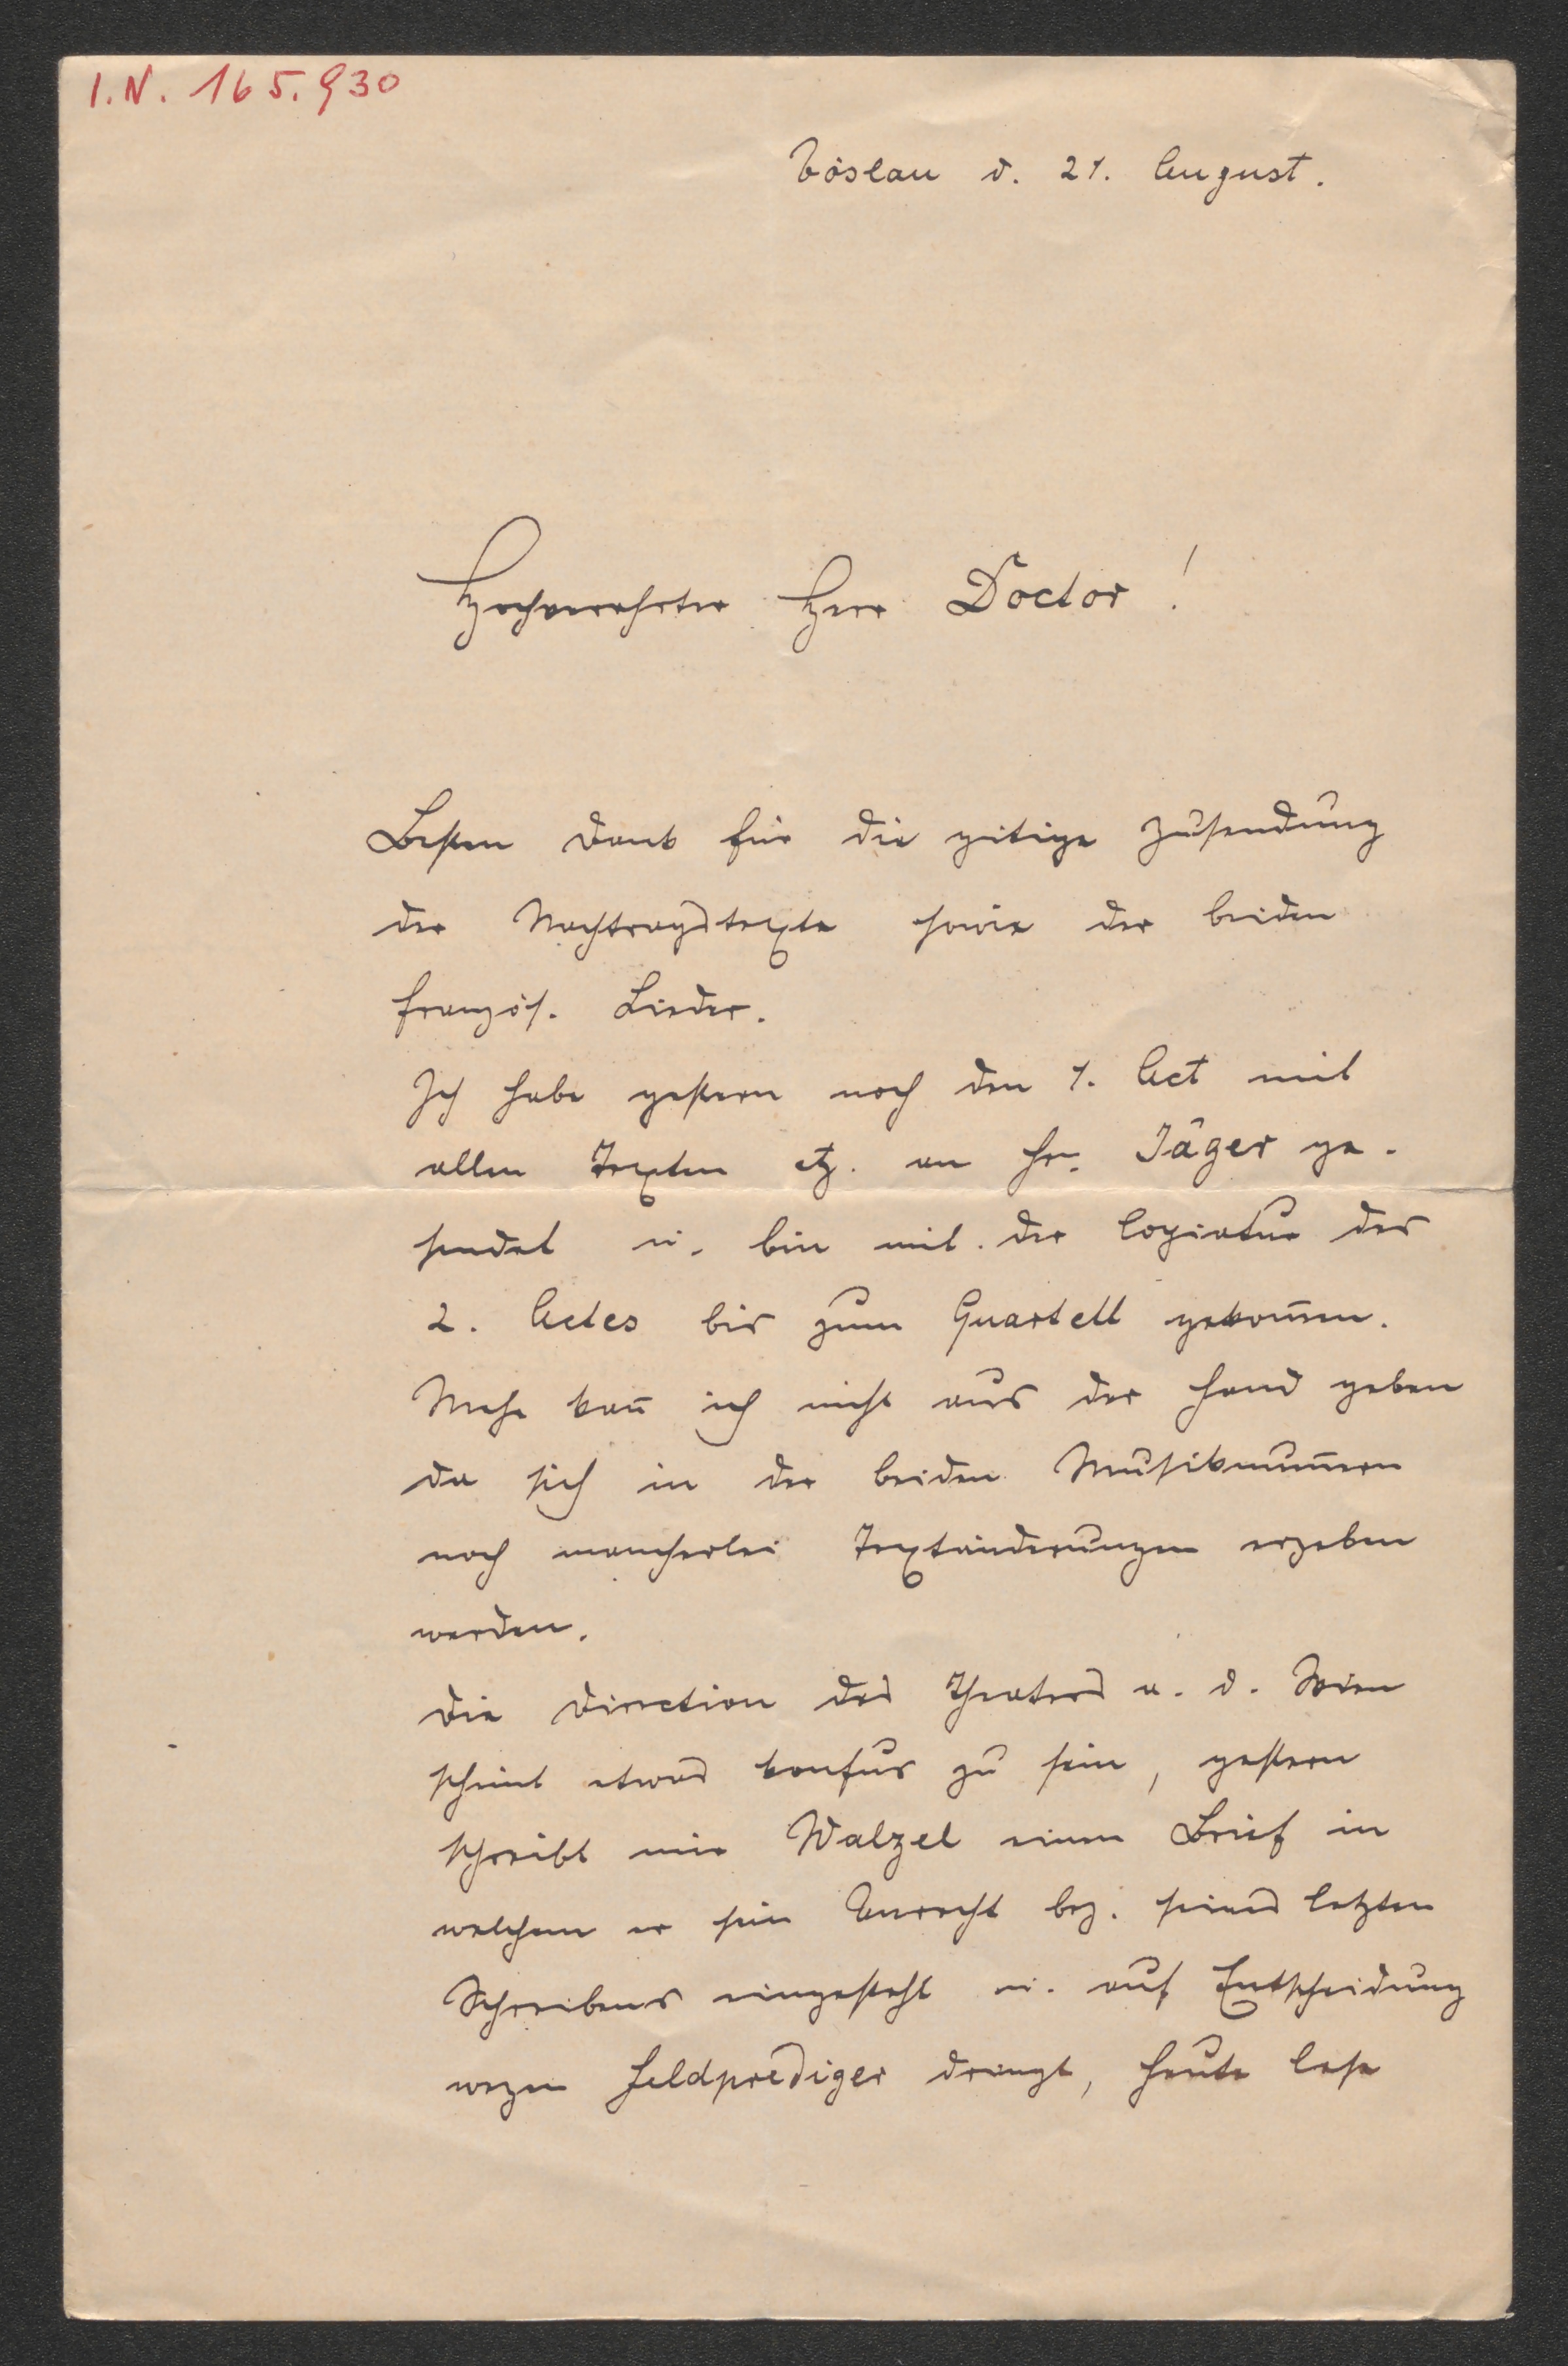 I.N. 165.930
Vöslau d. 21. August.
Hochverehrter Herr Doctor!
Besten Dank für die gütige Zusendung
der Nachtragstexte sowie der beiden
französ. Lieder.
Ich habe gestern noch den 1. Act mit
allen Texten etz. an Hr. Jäger ge-
sendet u. bin mit der Copiatur des
2. Actes bis zum Quartett gekom̅en.
Mehr kan̅ ich nicht aus der Hand geben
da sich in der beiden Musiknum̅ern
noch mancherlei Textänderungen ergeben
werden.
Die Direction des Theaters a. d. Wien
scheint etwas konfus zu sein, gestern
schreibt mir Walzel einen Brief in
welchem er sein Unrecht bez. seines letzten
Schreibens eingesteht u. auf Entscheidung
wegen Feldprediger drängt, heute lese